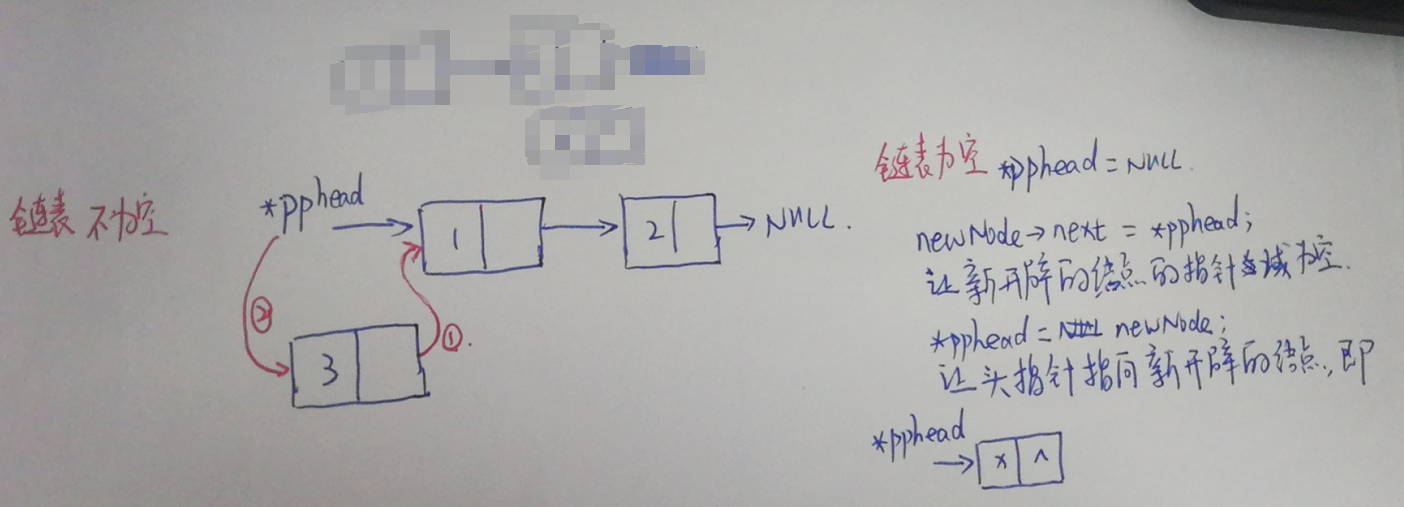 链表不为空
*pphead
1
2
NULL.
②
①.
3
链表为空 *pphead = NULL.
newNode→next = *pphead;
让新开辟的结点的指针域为空.
*pphead = newNode;
让头指针指向新开辟的结点,即
*pphead
x ^